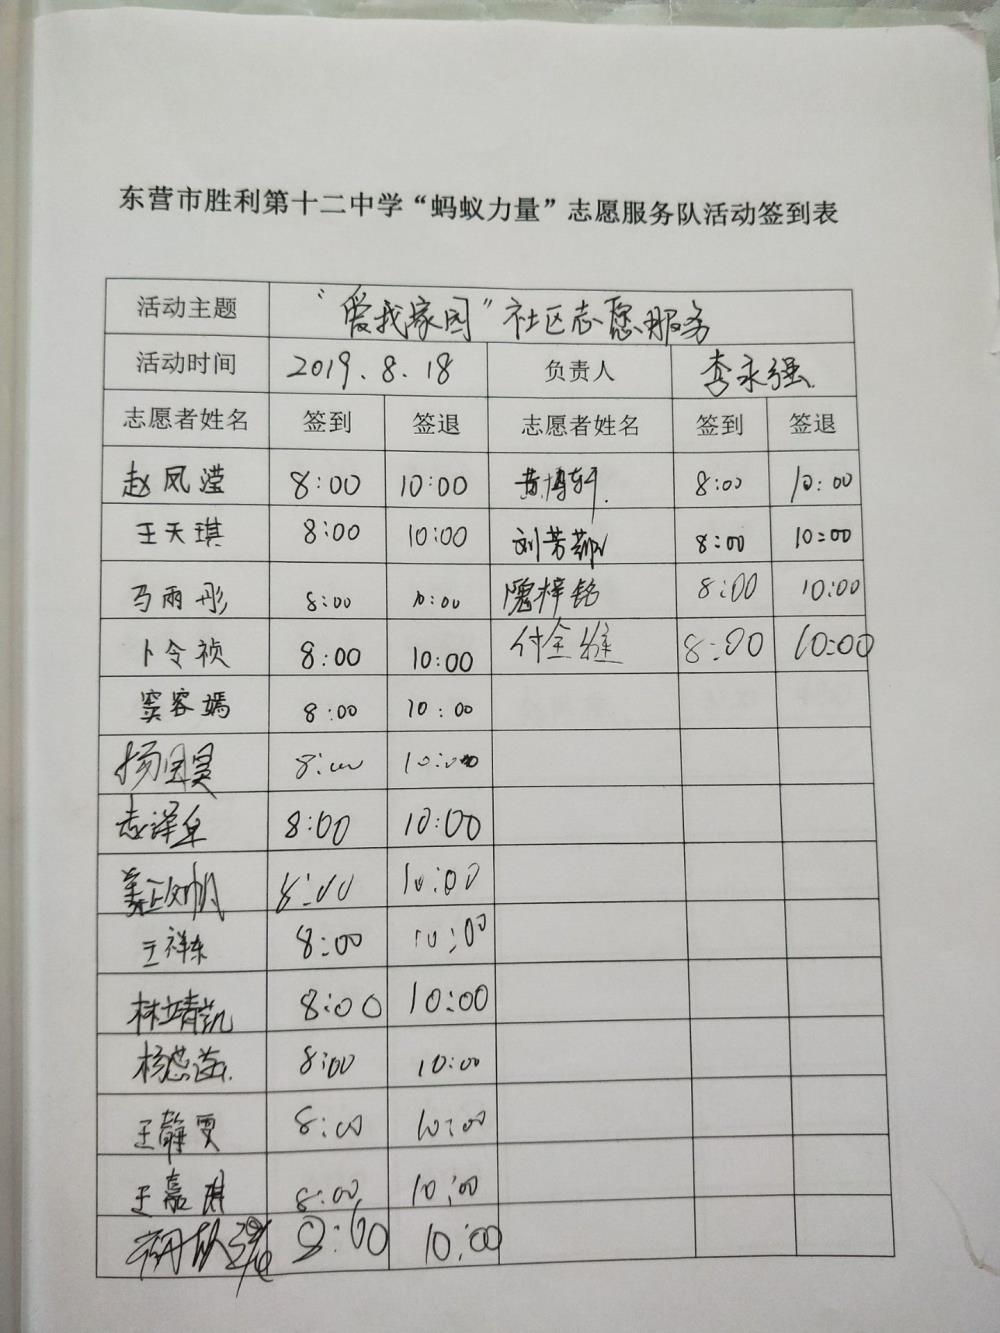 东营市胜利第十二中学“蚂蚁力量”志愿服务队活动签到表
活动主题 “爱我家园”社区志愿服务
活动时间 2019.8.18 负责人 李永强
志愿者姓名 签到 签退 志愿者姓名 签到 签退
赵凤滢 8:00 10:00 黄博轩 8:00 10:00
王天琪 8:00 10:00 刘芳 8:00 10:00
马雨彤 8:00 10:00 隗梓铭 8:00 10:00
卜令祯 8:00 10:00 付全 8:00 10:00
窦容嫣 8:00 10:00
杨国昊 8:00 10:00
泽 8:00 10:00
姜 8:00 10:00
王祥东 8:00 10:00
林靖凯 8:00 10:00
杨 8:00 10:00
王静雯 8:00 10:00
王嘉琪 8:00 10:00
10:00